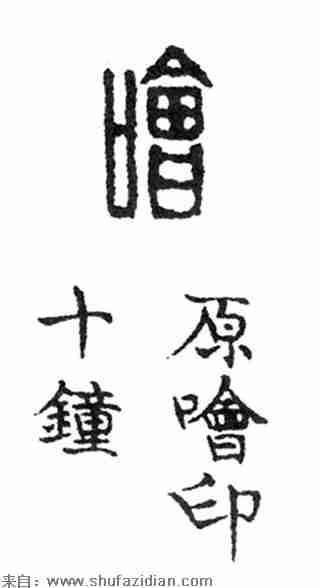 噲
原噲印
十鐘
来自：www.shufazidian.com